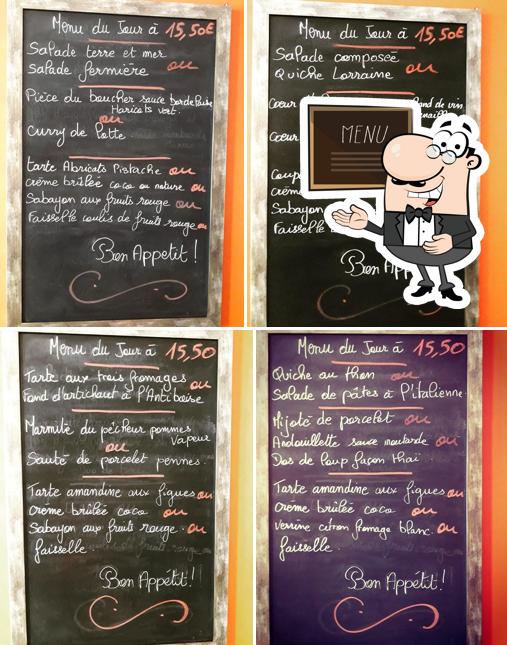 Menu du Jour à 15,50€
Salade terre et mer
Salade fermière ou
Pièce du boucher sauce bordelaise
Haricots vert.
ou
Curry de Lotte
tarte Abricots Pistache ou
crème brûlée coco ou nature ou
Sabayon aux fruits rouge ou
Faisselle coulis de fruits rouge ou
Bon Appetit !
Menu du Jour à 15,50€
Salade composée
Quiche Lorraine ou
Coeur
fond de vin
Coeur
MENU
Coup
crèm
Sabayon
Faisselle
Bon App
Menu du Jour à 15,50
Tarte aux trois fromages
ou
Fond d'artichaut à l'Antiboise
Marmite du pécheur pommes
vapeur
ou
Sauté de porcelet pennes.
Tarte amandine aux figues ou
Crème brûlée coco ou
Sabayon aux fruits rouge. ou
faisselle
Bon Appétit!
Menu du Jour à 15,50
Quiche au thon ou
Salade de pâtes à l'italienne
Mijoté de porcelet ou
Andouillette sauce moutarde ou
Dos de loup façon thaï
Tarte amandine aux figues ou
Crème brûlée coco ou
verrine citron fromage blanc. ou
faisselle.
Bon Appétit!